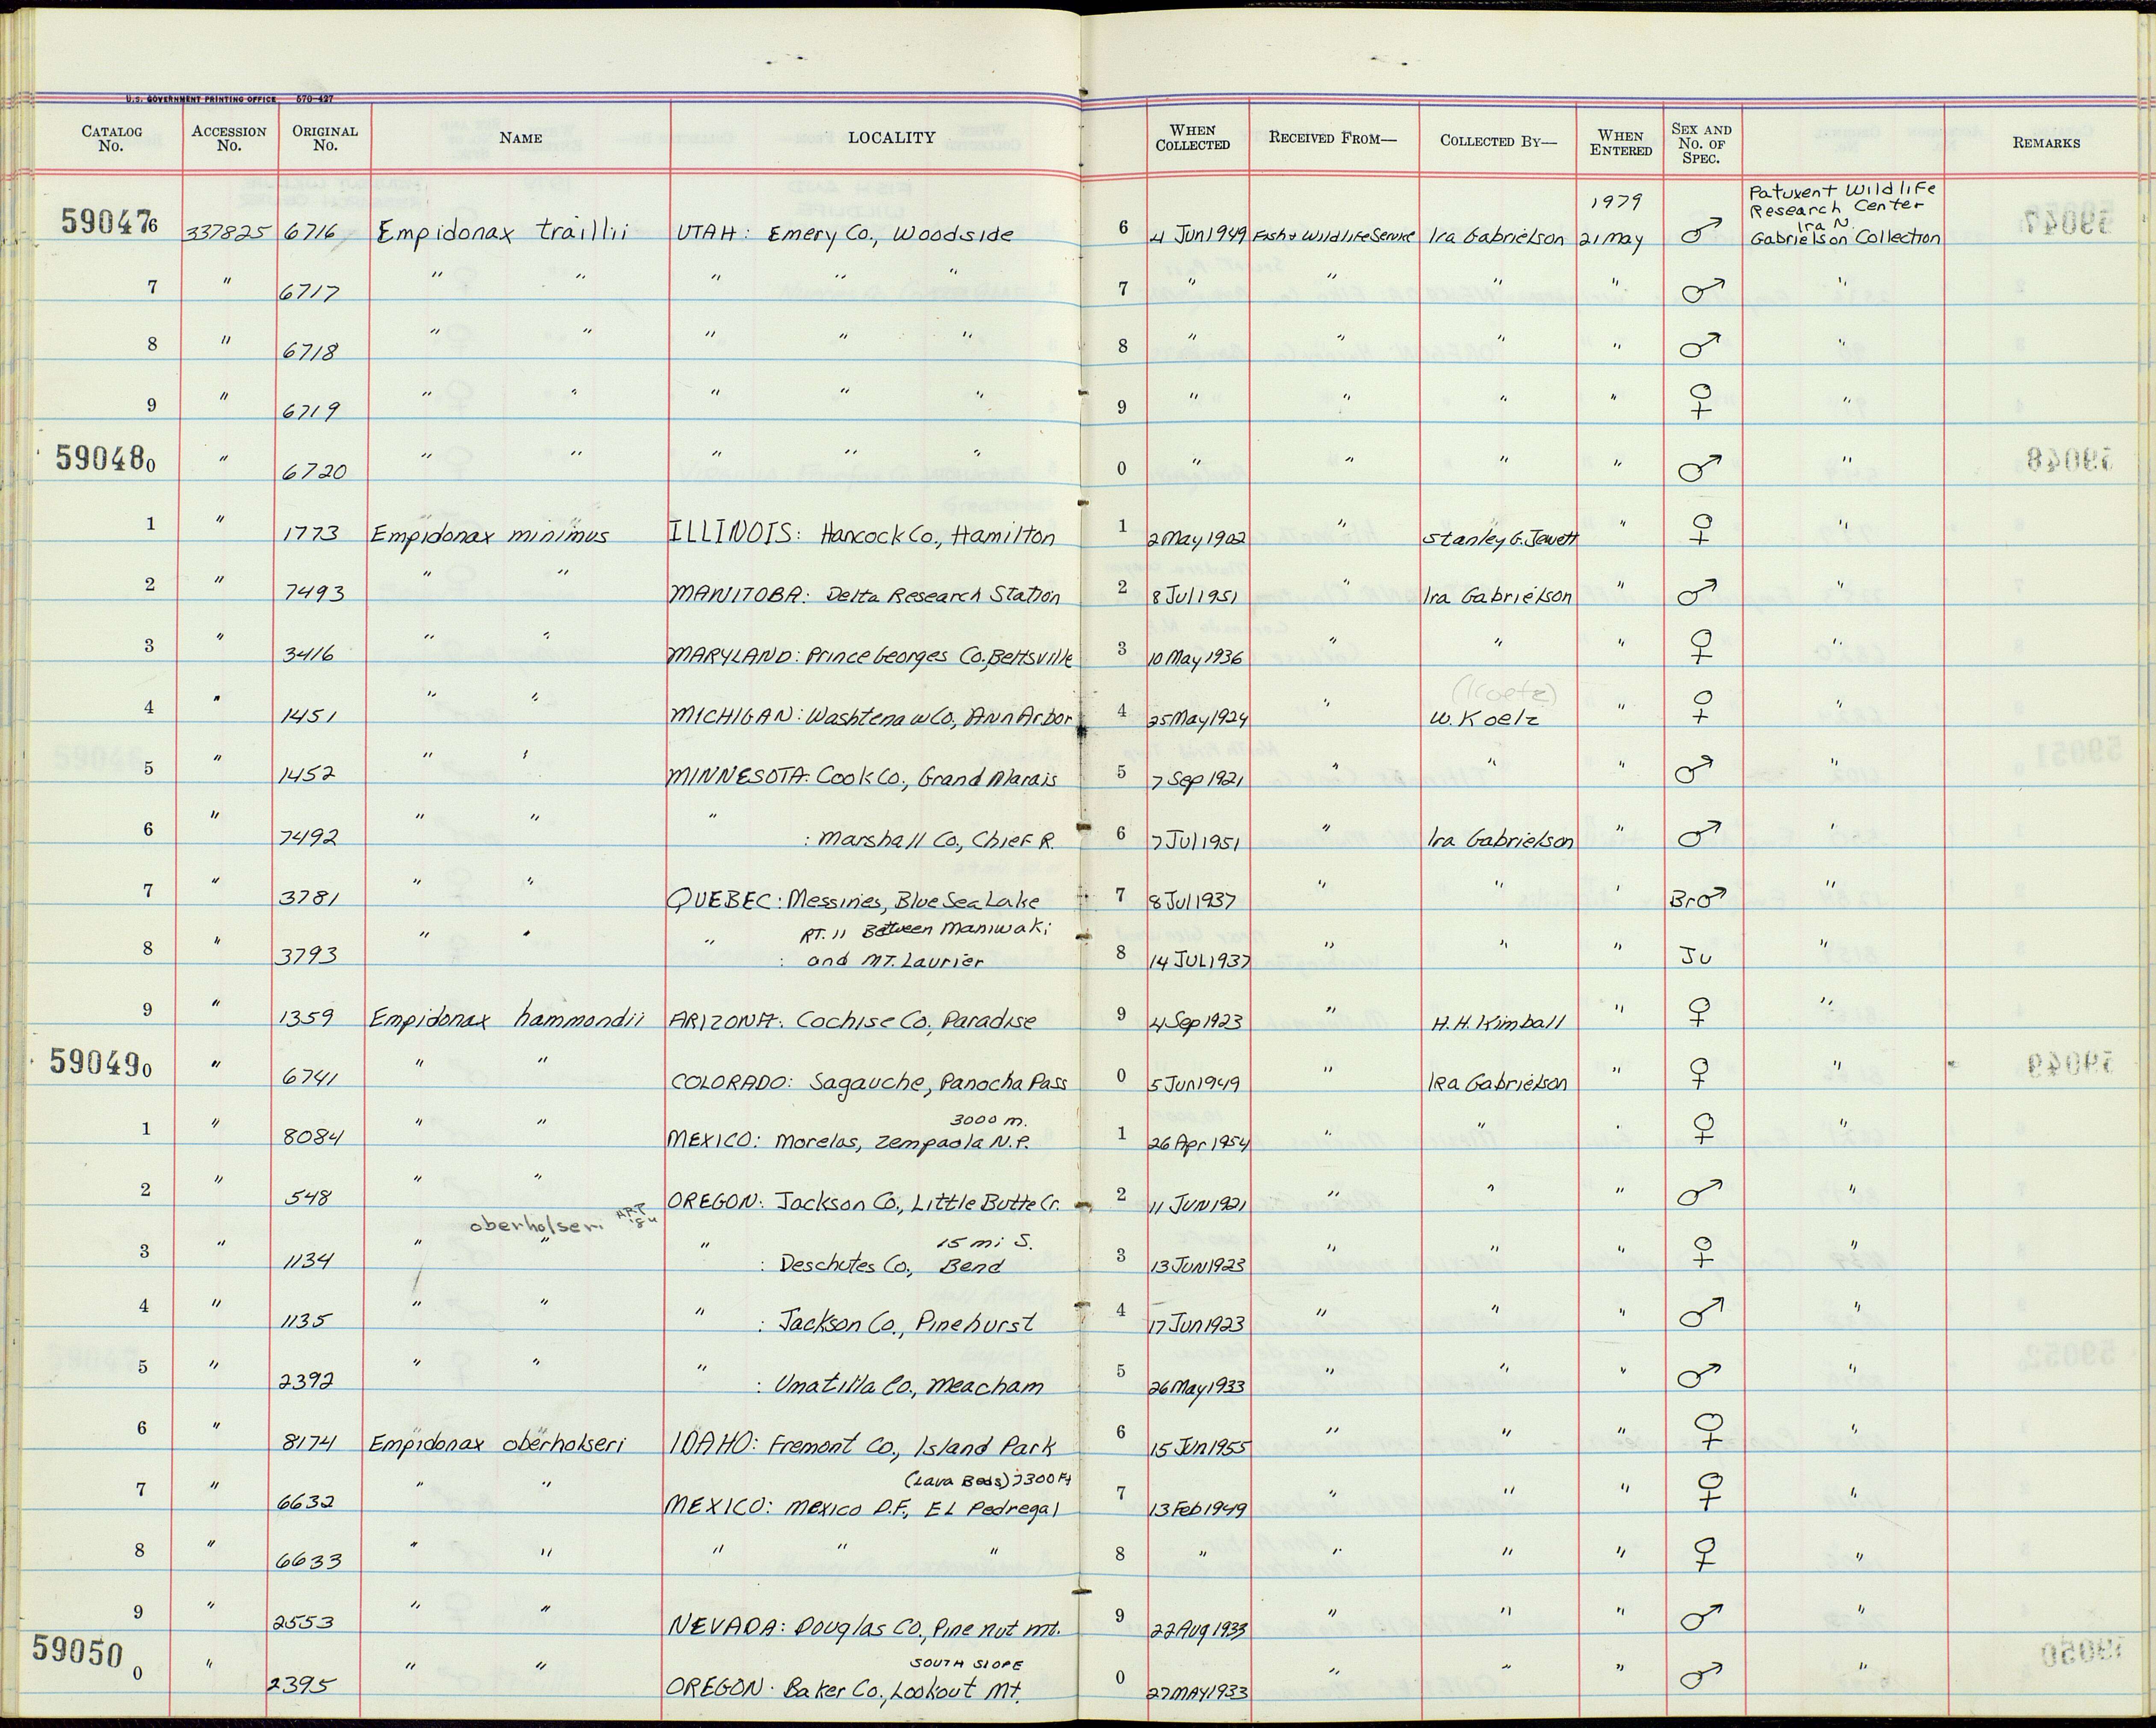 U.S. GOVERNMENT PRINTING OFFICE 670-427
CATALOG No. ACCESSION No. ORIGINAL No. NAME LOCALITY WHEN COLLECTED RECEIVED FROM— COLLECTED BY— WHEN ENTERED SEX AND No. OF SPEC. REMARKS
590476 337825 6716 Empidonax traillii UTAH: Emery Co., Woodside 6 4 Jun 1949 Fish & Wildlife Service Ira Gabrielson 1979 21 May ♂ Patuxent Wildlife Research Center Ira N. Gabrielson Collection
7 " 6717 " " " " " 7 " " " " ♂ "
8 " 6718 " " " " " 8 " " " " ♂ "
9 " 6719 " " " " " 9 " " " " ♀ "
590480 " 6720 " " " " " 0 " " " " ♂ "
1 " 1773 Empidonax minimus ILLINOIS: Hancock Co., Hamilton 1 2 May 1902 " Stanley G. Jewett " ♀ "
2 " 7493 " " MANITOBA: Delta Research Station 2 8 Jul 1951 " Ira Gabrielson " ♂ "
3 " 3416 " " MARYLAND: Prince Georges Co, Beltsville 3 10 May 1936 " " " ♀ "
4 " 1451 " " MICHIGAN: Washtenaw Co, Ann Arbor 4 25 May 1924 " (Koelz) W. Koelz " ♀ "
5 " 1452 " " MINNESOTA: Cook Co., Grand Marais 5 7 Sep 1921 " " " ♂ "
6 " 7492 " " " : Marshall Co., Chief R. 6 7 Jul 1951 " Ira Gabrielson " ♂ "
7 " 3781 " " QUEBEC: Messines, Blue Sea Lake 7 8 Jul 1937 " " " Br♂ "
8 " 3793 " " " : RT. 11 Between Maniwaki and MT. Laurier 8 14 JUL 1937 " " " Ju "
9 " 1359 Empidonax hammondii ARIZONA: Cochise Co., Paradise 9 4 Sep 1923 " H. H. Kimball " ♀ "
590490 " 6741 " " COLORADO: Sagauche, Panocha Pass 0 5 Jun 1949 " Ira Gabrielson " ♀ "
1 " 8084 " " MEXICO: Morelas, Zempaola N.P. 3000 m. 1 26 Apr 1954 " " " ♀ "
2 " 548 " " OREGON: Jackson Co., Little Butte Cr. 2 11 JUN 1921 " " " ♂ "
oberholseri
3 " 1134 " " " : Deschutes Co., 15 mi S. Bend 3 13 JUN 1923 " " " ♀ "
4 " 1135 " " " : Jackson Co., Pinehurst 4 17 Jun 1923 " " " ♂ "
5 " 2392 " " " : Umatilla Co., Meacham 5 26 May 1933 " " " ♂ "
6 " 8174 Empidonax oberholseri IDAHO: Fremont Co., Island Park 6 15 Jun 1955 " " " ♀ "
7 " 6632 " " MEXICO: Mexico D.F., El Pedregal (Lava Beds) 7300 Ft 7 13 Feb 1949 " " " ♀ "
8 " 6633 " " " " " 8 " " " " ♀ "
9 " 2553 " " NEVADA: Douglas Co., Pine nut mt. 9 22 Aug 1933 " " " ♂ "
590500 " 2395 " " OREGON: Baker Co., Lookout Mt. SOUTH SLOPE 0 27 MAY 1933 " " " ♂ "